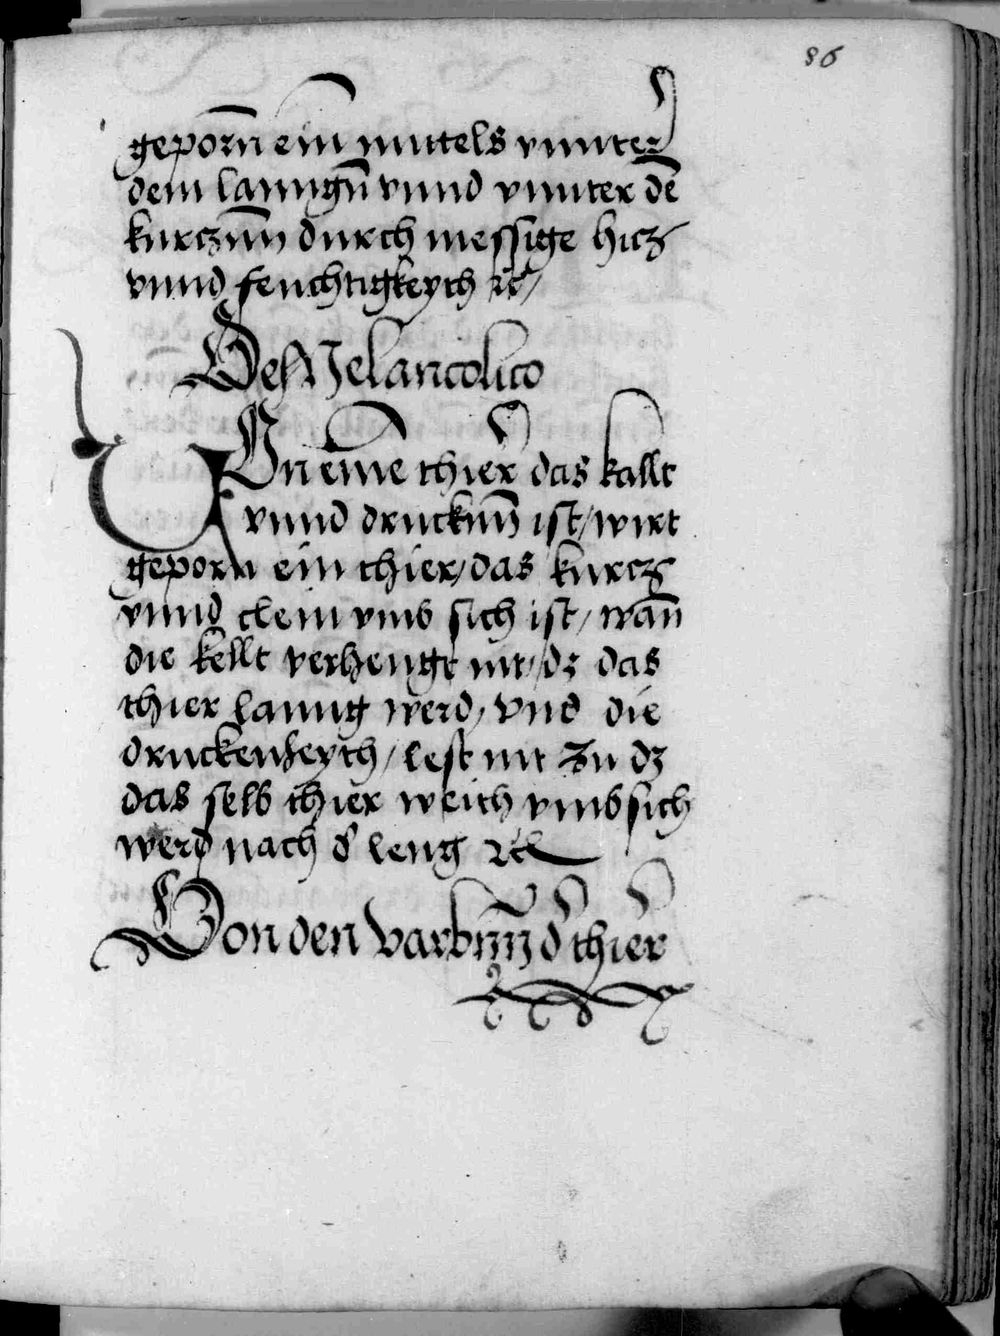 86
geporñ ein mittels vnnter
dem lanngñ vnnd vnnter dē
kurcznn̄ durch messige hicz
vnnd feuchtigkeych ꝛc̃/
De Melancolico
Von eine thier das kallt
vnnd druckenn̄ ist/ wirt
geporn ein thier/ das kurcz
vnnd clein vmb sich ist/ wan̄
die kellt verhengt nit/ dz das
thier lanng werd/ vnd die
druckenheych/ lest nit zu dz
das selb thier weith vmb sich
werd nach d̕ leng ꝛc̃
Von den varbnn̄ d̕ thier